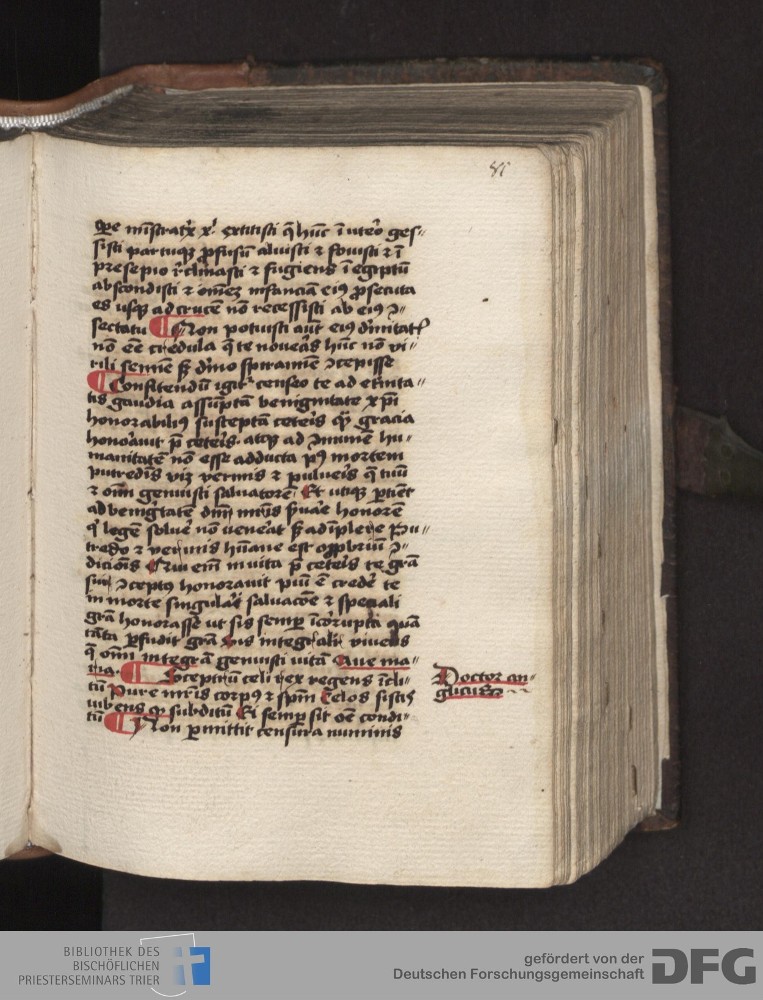 ꝑe ministratrix xi extitisti q̄ hūc ī utero ges-
sisti partuqꝫ ꝓfusū aluisti ⁊ fouisti ⁊ ī
presepio rͤclinasti ⁊ fugiens ī egiptū
abscondisti ⁊ om̄eꝫ infanciā eiꝰ ꝓsecuta
es usqꝫ ad crucē nō recessisti ab eiꝰ ɔ-
sectatu ¶ Non potuisti aut̄ eiꝰ diuinitat
nō eē credula q̄ te noueras hūc nō vi-
rili semīe sꝫ diuīo spiramīe ɔcepisse
¶ Confitendū igit̄ censeo te ad et̄nita-
tis gaudia assūptā benignitate xp̄i
honorabiliꝰ susceptā ceteris qꝫ gracia
honorauit p̄ ceteris. atqꝫ ad ɔmunē hu-
manitatē nō esse adducta pꝰ mortem
putredīs viꝫ vermis ⁊ pulueris q̄ tuū
⁊ om̄ genuisti saluatorē Et utiqꝫ ꝑtinet
ad benignitatē dn̄i matris ẜuare honorē
qͥ legē soluere nō venerat sꝫ adīplere Pu-
tredo ⁊ vermis hūane est opprobriū ɔ-
dicionis Cui em̄ in uita p̄ ceteris te grā
sui ɔceptꝰ honorauit piū ē credere te
in morte singulari saluacōe ⁊ speciali
grā honorasse ut sis semper īcorrupta quā
tāta ꝑfudit grā Sis integraliter viuens
q̄ om̄ integrā genuisti uitā Aue ma-
ria. ¶ Sceptrū celi rex regens īcli-
tū Pure mr̄is corpꝰ ⁊ spm̄ Celos sistis
iubens qꝫ subditū Ei semper sit oē condi-
tū ¶ Non ꝑmittit censura numinis
Doctor an-
glicus
BIBLIOTHEK DES
BISCHÖFLICHEN
PRIESTERSEMINARS TRIER
gefördert von der
Deutschen Forschungsgemeinschaft
DFG